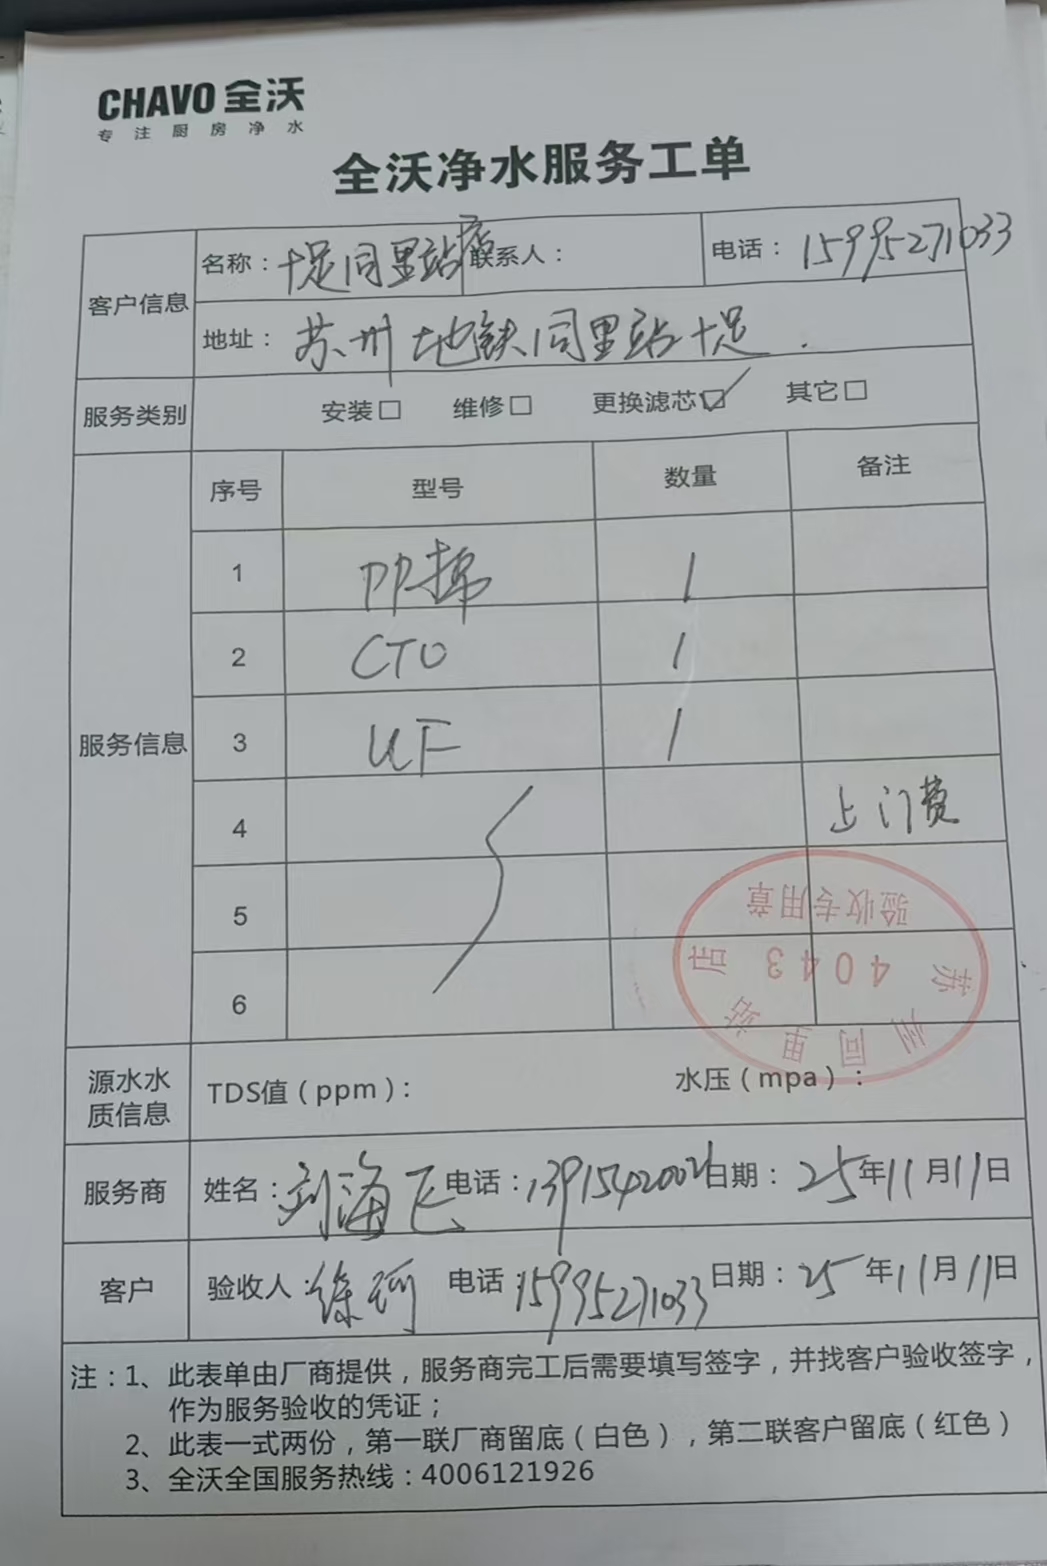 CHAVO 全沃
专注厨房净水
全沃净水服务工单
客户信息
名称：十足同里站店 联系人： 电话：15995271033
地址：苏州地铁同里站十足.
服务类别 安装□ 维修□ 更换滤芯☑ 其它□
服务信息
序号 型号 数量 备注
1 PP棉 1
2 CTO 1
3 UF 1
4 上门费
5
6
验收专用章
4043
苏州同里站店
源水水质信息 TDS值（ppm）： 水压（mpa）：
服务商 姓名：刘海飞 电话：13915420026 日期：25年11月11日
客户 验收人：徐珂 电话：15995271033 日期：25年11月11日
注：1、此表单由厂商提供，服务商完工后需要填写签字，并找客户验收签字，
作为服务验收的凭证；
2、此表一式两份，第一联厂商留底（白色），第二联客户留底（红色）
3、全沃全国服务热线：4006121926